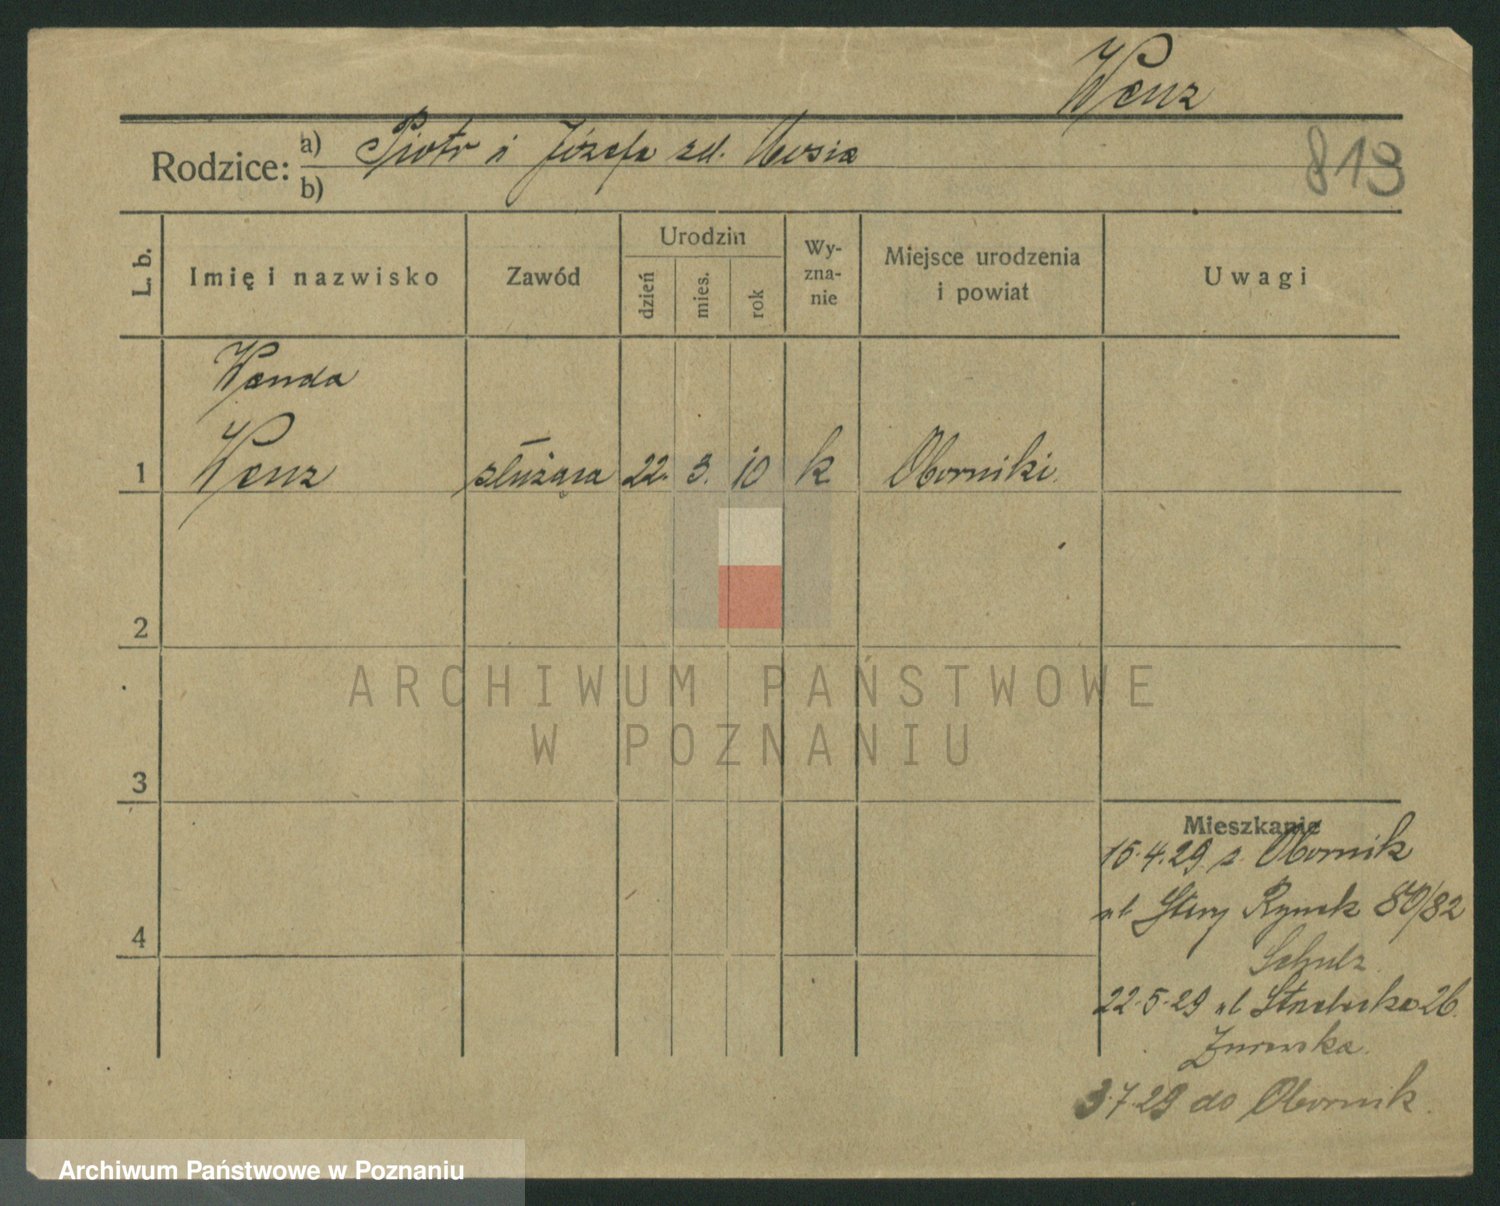 Wenz
Rodzice: a) Piotr i Józefa zd.
b)
819
L. b.
Imię i nazwisko
Zawód
Urodzin
dzień
mies.
rok
Wy-
zna-
nie
Miejsce urodzenia
i powiat
Uwagi
Wanda
1 Wenz służąca 22. 3. 10 k Oborniki.
2
ARCHIWUM PAŃSTWOWE
W POZNANIU
3
Mieszkanie
15.4.29 z Obornik
ul Stary Rynek 80/82
Schulz
22.5.29 ul 26.
Żurowska.
3.7.29 do Obornik.
4
Archiwum Państwowe w Poznaniu